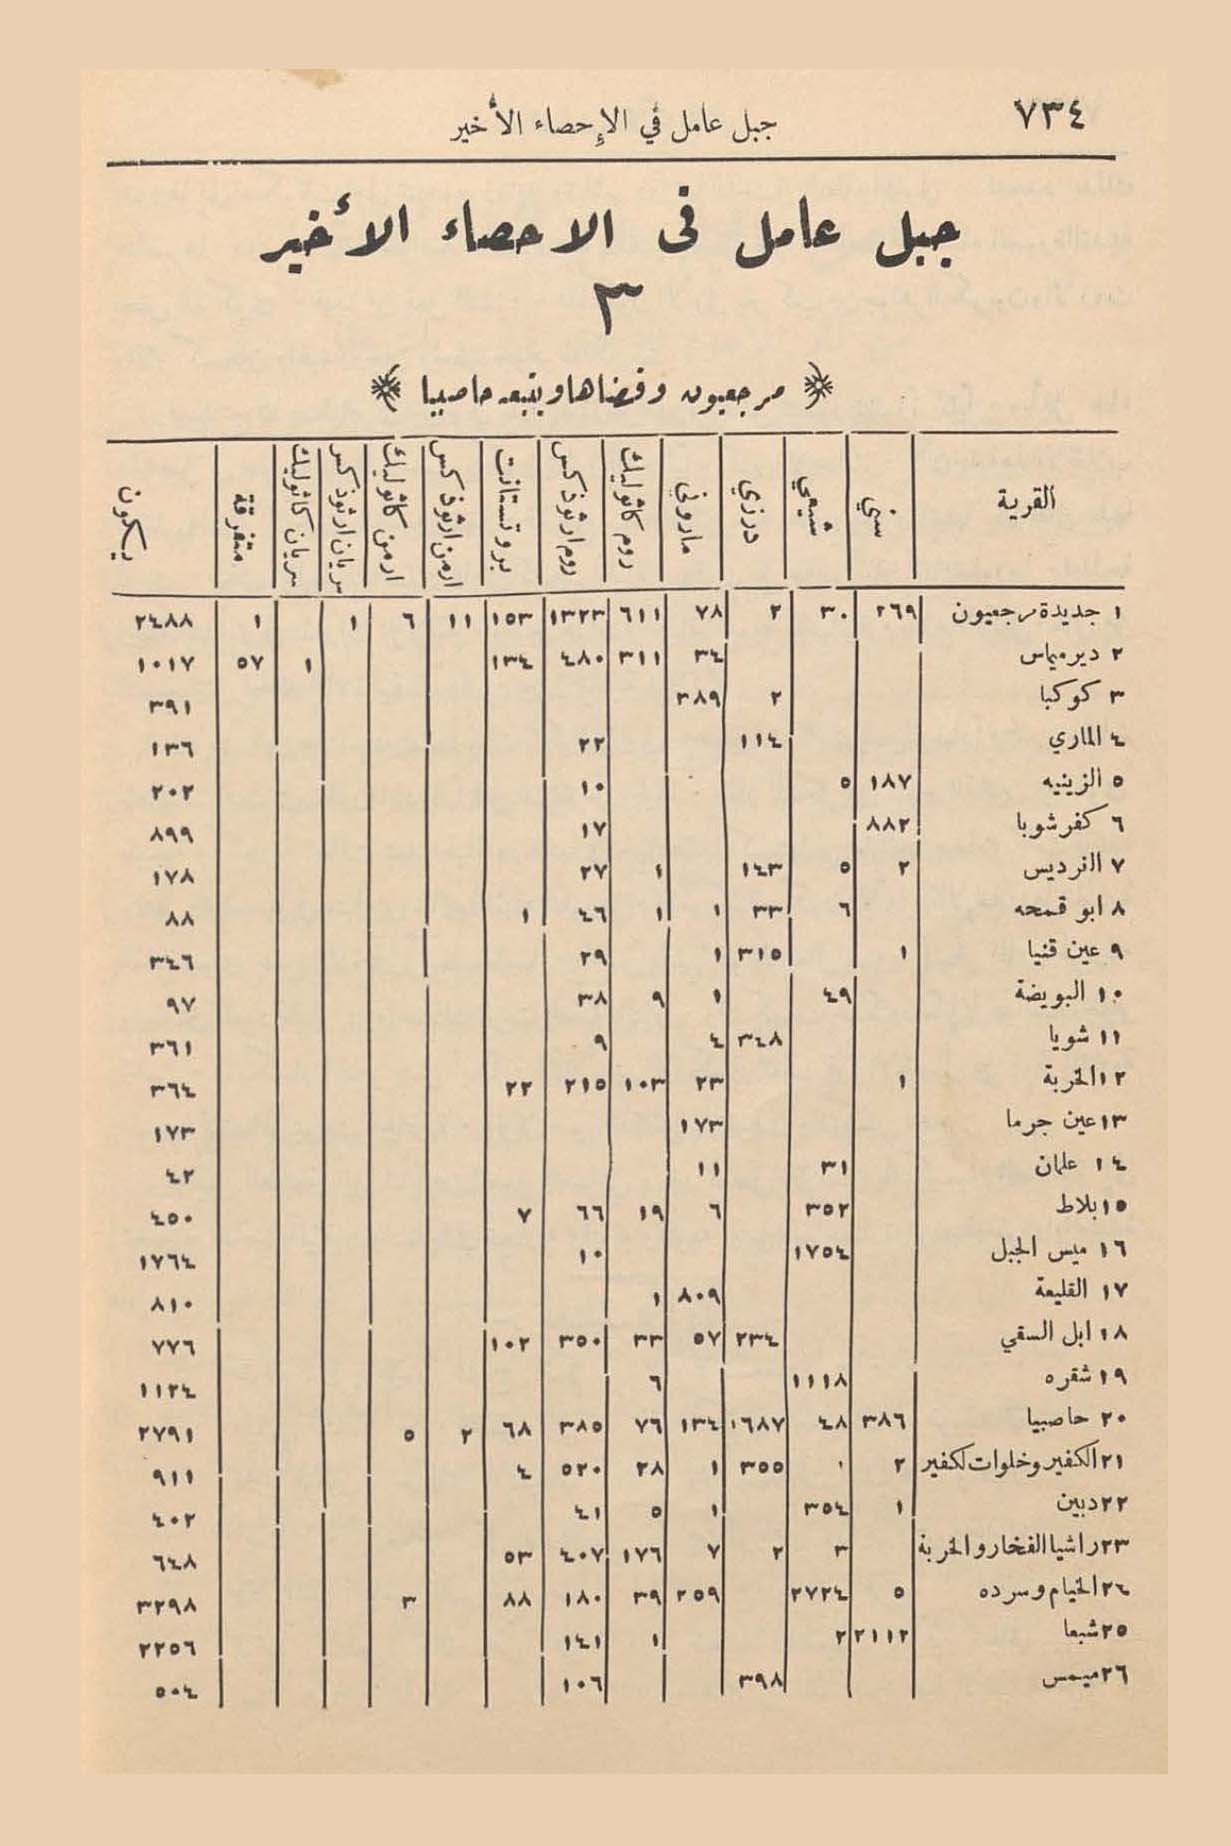 ٧٣٤ جبل عامل في الإحصاء الأخير
جبل عامل فى الاحصاء الأخير
٣
مرجعيون وقضاها ويتبعه حاصبيا
القرية سني شيعي درزي ماروني روم كاثوليك روم ارثوذكس بروتستانت ارمن ارثوذكس ارمن كاثوليك سريان ارثوذكس سريان كاثوليك متفرقة يكون
١ جديدة مرجعيون ٢٦٩ ٣٠ ٢ ٧٨ ٦١١ ١٣٢٣ ١٥٣ ١١ ٦ ١ ١ ٢٤٨٨
٢ ديرميماس ٣٤ ٣١١ ٤٨٠ ١٣٤ ١ ٥٧ ١٠١٧
٣ كوكبا ٢ ٣٨٩ ٣٩١
٤ الماري ١١٤ ٢٢ ١٣٦
٥ الزينيه ١٨٧ ٥ ١٠ ٢٠٢
٦ كفرشوبا ٨٨٢ ١٧ ٨٩٩
٧ النرديس ٢ ٥ ١٤٣ ١ ٢٧ ١٧٨
٨ ابو قمحه ٦ ٣٣ ١ ١ ٤٦ ١ ٨٨
٩ عين قنيا ١ ٣١٥ ١ ٢٩ ٣٤٦
١٠ البويضة ٤٩ ١ ٩ ٣٨ ٩٧
١١ شويا ٣٤٨ ٤ ٩ ٣٦١
١٢ الخربة ١ ٢٣ ١٠٣ ٢١٥ ٢٢ ٣٦٤
١٣ عين جرما ١٧٣ ١٧٣
١٤ علمان ٣١ ١١ ٤٢
١٥ بلاط ٣٥٢ ٦ ١٩ ٦٦ ٧ ٤٥٠
١٦ ميس الجبل ١٧٥٤ ١٠ ١٧٦٤
١٧ القليعة ٨٠٩ ١ ٨١٠
١٨ ابل السقي ٢٣٤ ٥٧ ٣٣ ٣٥٠ ١٠٢ ٧٧٦
١٩ شقره ١١١٨ ٦ ١١٢٤
٢٠ حاصبيا ٣٨٦ ٤٨ ١٦٨٧ ١٣٤ ٧٦ ٣٨٥ ٦٨ ٢ ٥ ٢٧٩١
٢١ الكفير وخلوات لكفير ٢ ٠ ٣٥٥ ١ ٢٨ ٥٢٠ ٤ ٩١١
٢٢ دبين ١ ٣٥٤ ١ ٥ ٤١ ٤٠٢
٢٣ راشيا الفخار والخربة ٣ ٢ ٧ ١٧٦ ٤٠٧ ٥٣ ٦٤٨
٢٤ الخيام وسرده ٥ ٢٧٢٤ ٢٥٩ ٣٩ ١٨٠ ٨٨ ٣ ٣٢٩٨
٢٥ شبعا ٢١١٢ ٢ ١ ١٤١ ٢٢٥٦
٢٦ ميمس ٣٩٨ ١٠٦ ٥٠٤